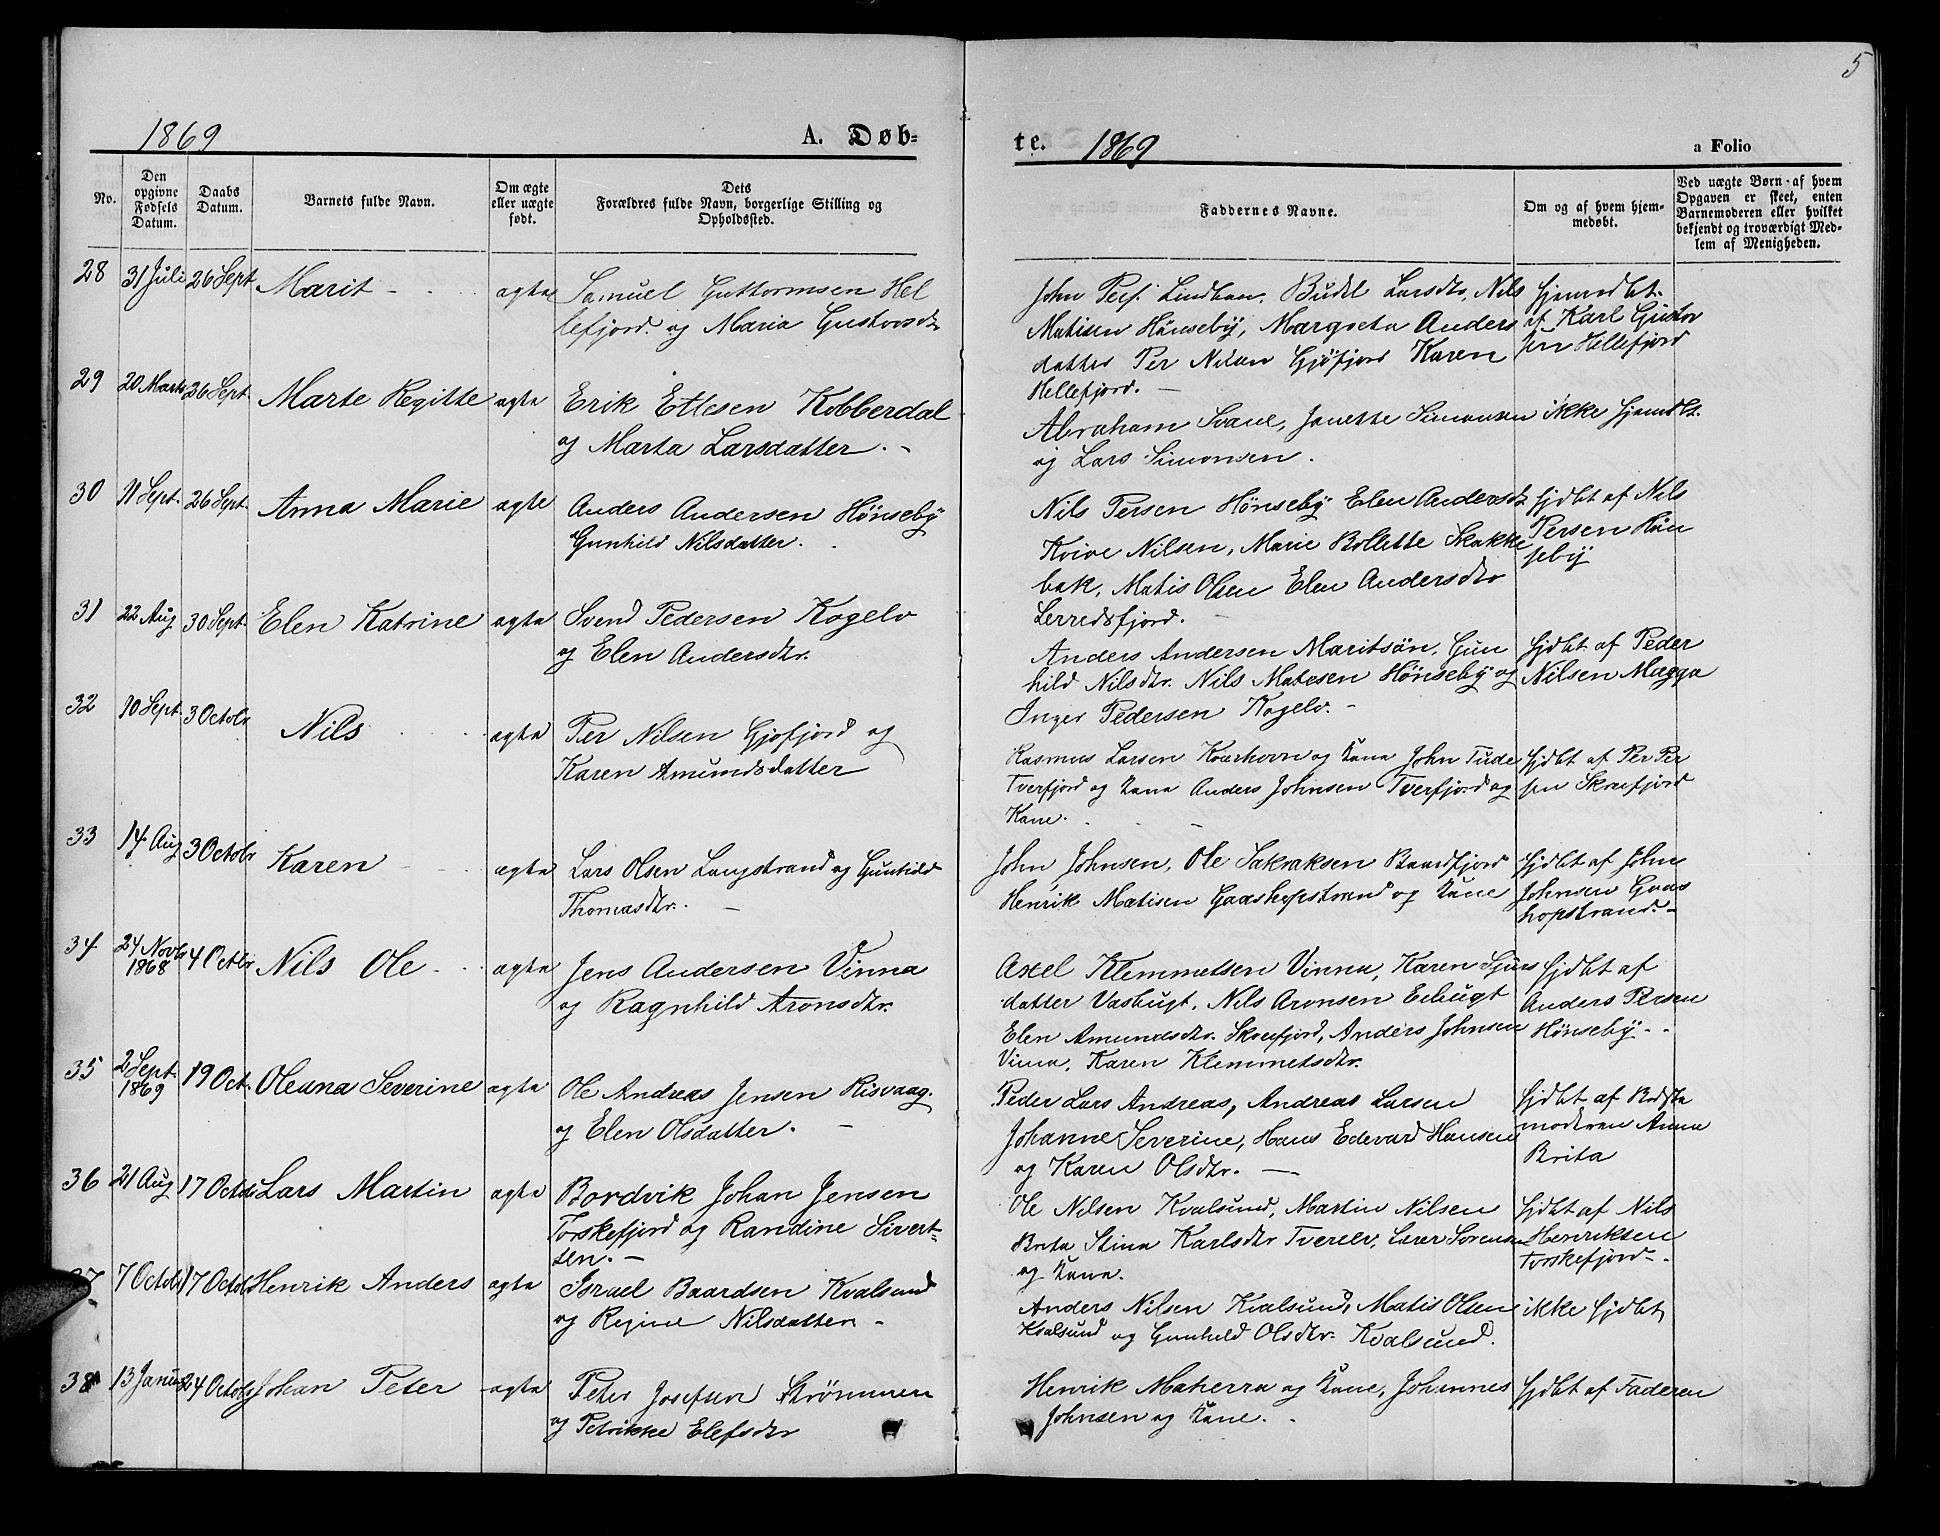 5
1869
A. Døb-
te.
1869
a Folio
No.
Den
opgivne
Fødsels
Datum.
Daabs
Datum.
Barnets fulde Navn.
Om ægte
eller uægte
født.
Dets
Forældres fulde Navn, borgerlige Stilling og
Opholdssted.
Faddernes Navne.
Om og af hvem hjem-
medøbt.
Ved uægte Børn af hvem
Opgaven er skeet, enten
Barnemoderen eller hvilket
bekjendt og troværdigt Med-
lem af Menigheden.
28 31 Juli 26 Sept Marit - agte Samuel Guttormsen Hel
lefjord og Maria Gustavsdtr
John Persf. Lindban, Budel Larsdtr, Nils
Matisen Hönseby, Margreta Anders
datter Per Nilsen Gjøfjord Karen
Hellefjord. -
Hjemdbt.
af Karl Gustav
sen Hellefjord
29 20 Marts 26 Sept. Marte Regitte agte Erik Ettesen Kobberdal
og Marta Larsdatter. -
Abraham Svane, Janette Simonsen
og Lars Simonsen.
ikke hjemdbt.
30 11 Sept. 26 Sept. Anna Marie agte Anders Andersen Hönseby
Gunhild Nilsdatter.
Nils Persen Hönseby Elen Andersdtr
Kvive Nilsen, Marie Bollette Skakke
bak, Matis Olsen Elen Andersdtr
Lerredsfjord.
hjdbt af Nils
Persen Hön
seby
31 22 Aug 30 Sept. Elen Katrine agte Svend Pedersen Kogelv
og Elen Andersdtr.
Anders Andersen Maritsön, Gun
hild Nilsdtr. Nils Matesen Hönseby og
Inger Pedersen Kogelv. -
hjdbt af Peder
Nilsen Magga
32 10 Sept. 3 Octobr Nils agte Per Nilsen Gjøfjord og
Karen Amundsdatter
Rasmus Larsen Kourhavn og Kone John Tude
Tverfjord og Kone Anders Johnsen Tverfjord og
Kone.
hjdbt af Per Per
sen Skreifjord
33 14 Aug 3 Octobr Karen agte Lars Olsen Langstrand og Gunhild
Thomasdtr. -
John Johnsen, Ole Sakraksen Baardfjord
Henrik Matisen Gaashopstrand og Kone
hjdbt af John
Johnsen Gaas
hopstrand. -
34 24 Novbr
1868 4 Octbr Nils Ole agte Jens Andersen Vinna
og Ragnhild Aronsdtr.
Axel Klemmetsen Vinna, Karen Sjurs
datter Vasbugt, Nils Aronsen Eibugt
Elen Amundsdtr. Skreifjord, Anders Johnsen
Vinna, Karen Klemmetsdtr.
hjdbt af
Anders Persen
Hönseby -
35 2 Sept.
1869 19 Oct. Oleana Severine agte Ole Andreas Jensen Risvaag.
og Elen Olsdatter. -
Peder Lars Andreas, Andreas Larsen
Johanne Severine, Hans Edevard Hansen
og Karen Olsdtr. -
hjdbt af Bedste
moderen Anna
Brita
36 21 Aug 17 Octbr Lars Martin agte Bordvik Johan Jensen
Torskefjord og Randine Sivert-
sen. -
Ole Nilsen Kvalsund, Martin Nilsen
Brita Stina Karlsdtr Tverelv, Lærer Sorensen
og Kone.
hjdbt af Nils
Henriksen
Torskefjord -
37 7 Octbr 17 Octbr Henrik Anders agte Israel Baardsen Kvalsund
og Regine Nilsdatter -
Anders Nilsen Kvalsund, Matis Olsen
Kvalsund og Gunhild Olsdtr. Kvalsund.
ikke hjdbt
38 13 Januar 24 Octobr Johan Peter agte Peter Josefsen Strömmen
og Petrikke Elefsdtr
Henrik Maherra og Kone, Johannes
Johnsen og Kone. -
hjdbt af Faderen